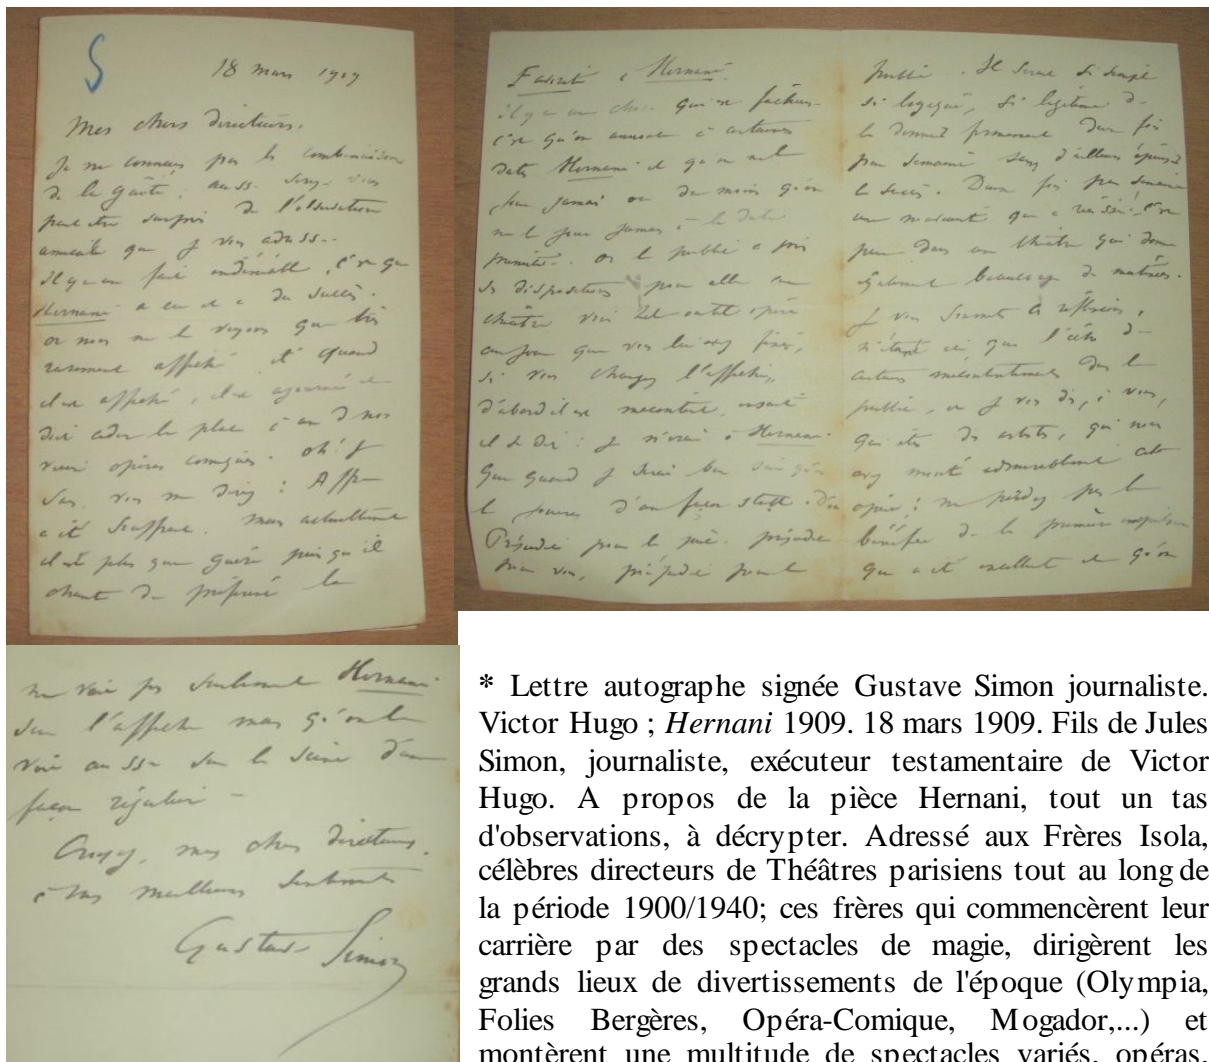 S
18 mars 1909
Mes chers directeurs.
Je ne connais pas les combinaisons
de la Gaîté, aussi serez-vous
peut être surpris de l'observation
amicale que je vous adresse.
Il y a un fait indéniable, c'est que
Hernani a eu et a du succès.
or nous ne le voyons que très
rarement affiché et quand
il est affiché, il est ajourné et
doit céder la place à un de nos
vieux opéras comiques. oh! je
sais, vous me direz : Affre
a été souffrant. mais actuellement
il est plus que guéri puisqu'il
chante de préférence la
Favorite à Hernani.
il y a une chose qui est fâcheuse
c'est qu'on annonce à certaines
dates Hernani et qu'on ne le
joue jamais ou du moins qu'on
ne le joue jamais à la date
promise. or le public a pris
ses dispositions pour aller au
théâtre voir tel ou tel opéra
au jour que vous lui avez fixé,
si vous changez l'affiche,
d'abord il est mécontent, ensuite
il se dit : je n'irai à Hernani
que quand je serai bien sûr qu'on
le jouera d'une façon stable. D'où
Préjudice pour la pièce. préjudice
pour vous, préjudice pour le
public. Il serait si simple
si logique, si légitime de
le donner fermement deux fois
par semaine sans d'ailleurs épuiser
le succès. Deux fois par semaine
une nouveauté qui a réussi! c'est
peu dans un théâtre qui donne
également beaucoup de matinées.
Je vous soumets ces réflexions,
n'étant ici que l'écho de
certains mécontentements dans le
public, et je vous dis, à vous,
qui êtes des artistes, qui nous
avez monté admirablement cet
opéra : ne perdez pas le
bénéfice de la première impression
qui a été excellente et qu'on
ne voie pas seulement Hernani
sur l'affiche mais qu'on le
voie aussi sur la scène d'une
façon régulière -
Croyez, mes chers directeurs,
à mes meilleurs sentiments
Gustave Simon
* Lettre autographe signée Gustave Simon journaliste.
Victor Hugo ; Hernani 1909. 18 mars 1909. Fils de Jules
Simon, journaliste, exécuteur testamentaire de Victor
Hugo. A propos de la pièce Hernani, tout un tas
d'observations, à décrypter. Adressé aux Frères Isola,
célèbres directeurs de Théâtres parisiens tout au long de
la période 1900/1940; ces frères qui commencèrent leur
carrière par des spectacles de magie, dirigèrent les
grands lieux de divertissements de l'époque (Olympia,
Folies Bergères, Opéra-Comique, Mogador,...) et
montèrent une multitude de spectacles variés, opéras,